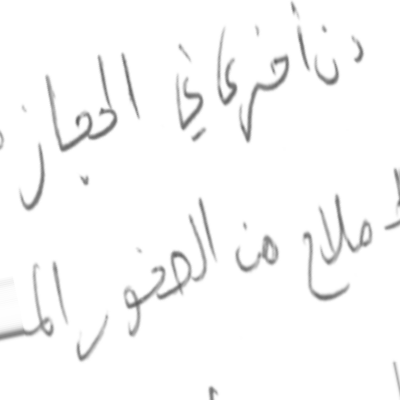 دن أخرى في الحجاز
ملاح من الصخور الم